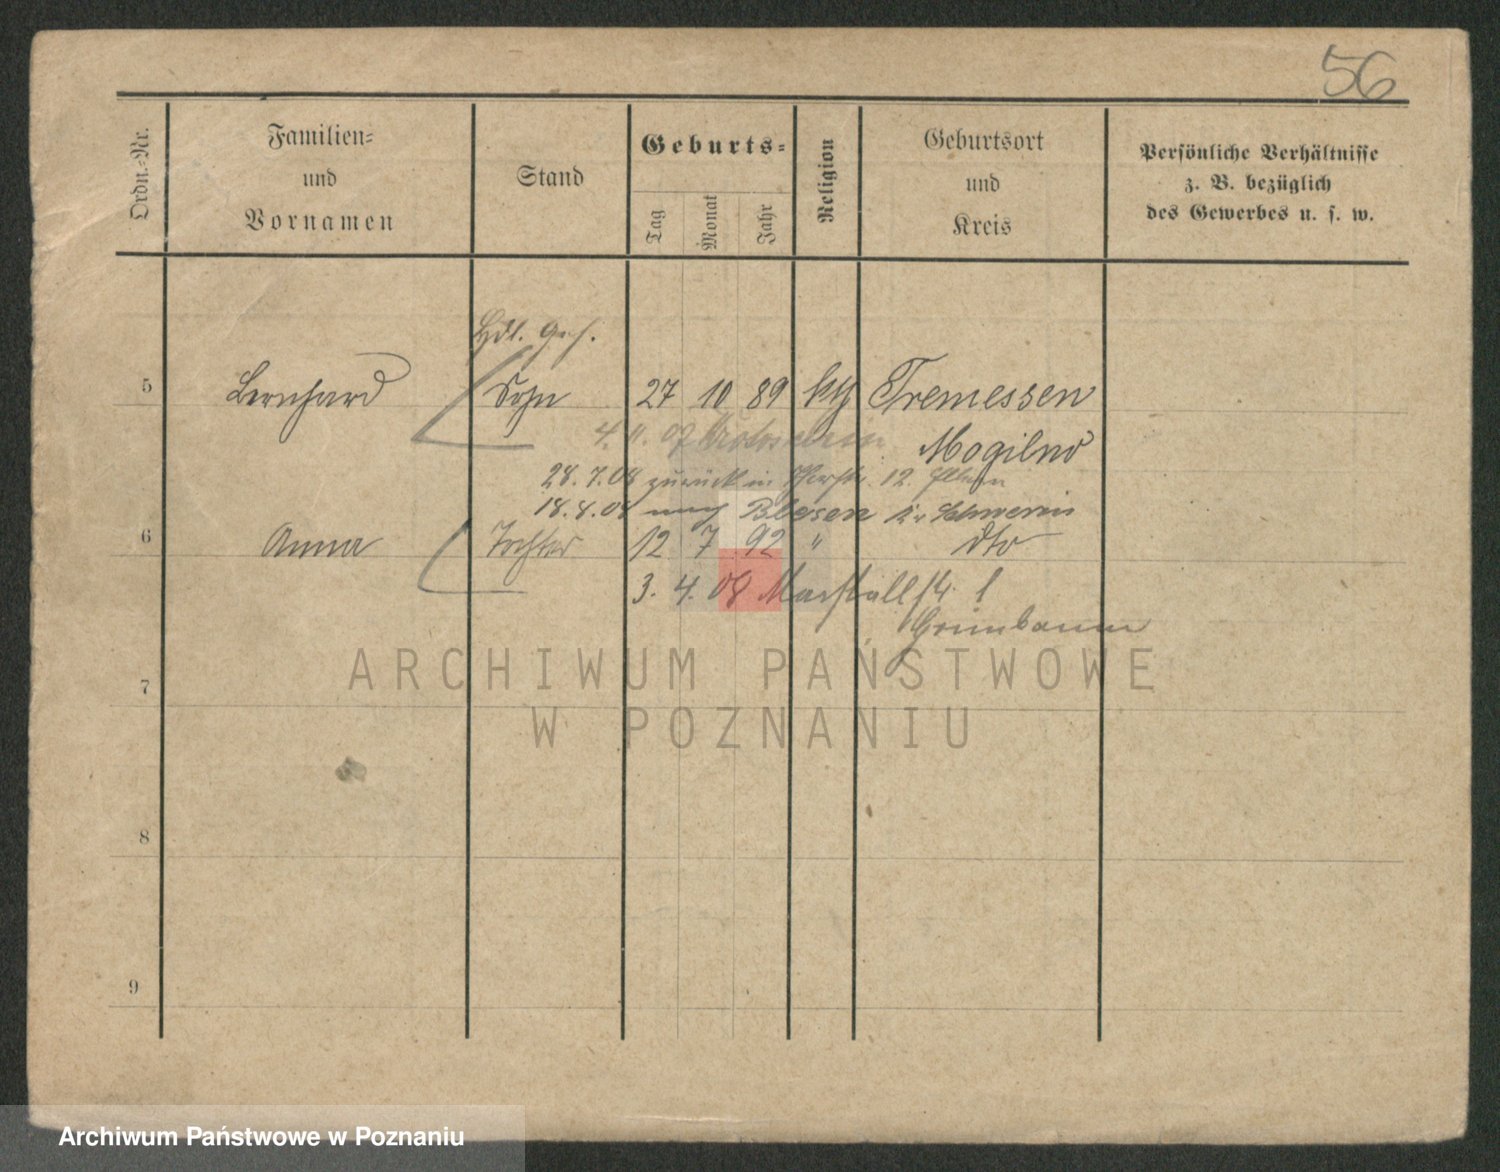 56
Ordn.-Nr.
Familien-
und
Vornamen
Stand
Geburts-
Tag
Monat
Jahr
Religion
Geburtsort
und
Kreis
Persönliche Verhältnisse
z. B. bezüglich
des Gewerbes u. s. w.
Hdl. Geh.
5 Bernhard Sohn 27 10 89 kth Tremessen
4. 11. 07
Mogilno
28. 7. 08 zurück in 12
18.8.08 nach Blesen Kr Schwerin
6 Anna Tochter 12 7 92 " dto
3. 4. 08 Marstallstr. 1
Grünbaum
ARCHIWUM PAŃSTWOWE
W POZNANIU
7
8
9
Archiwum Państwowe w Poznaniu